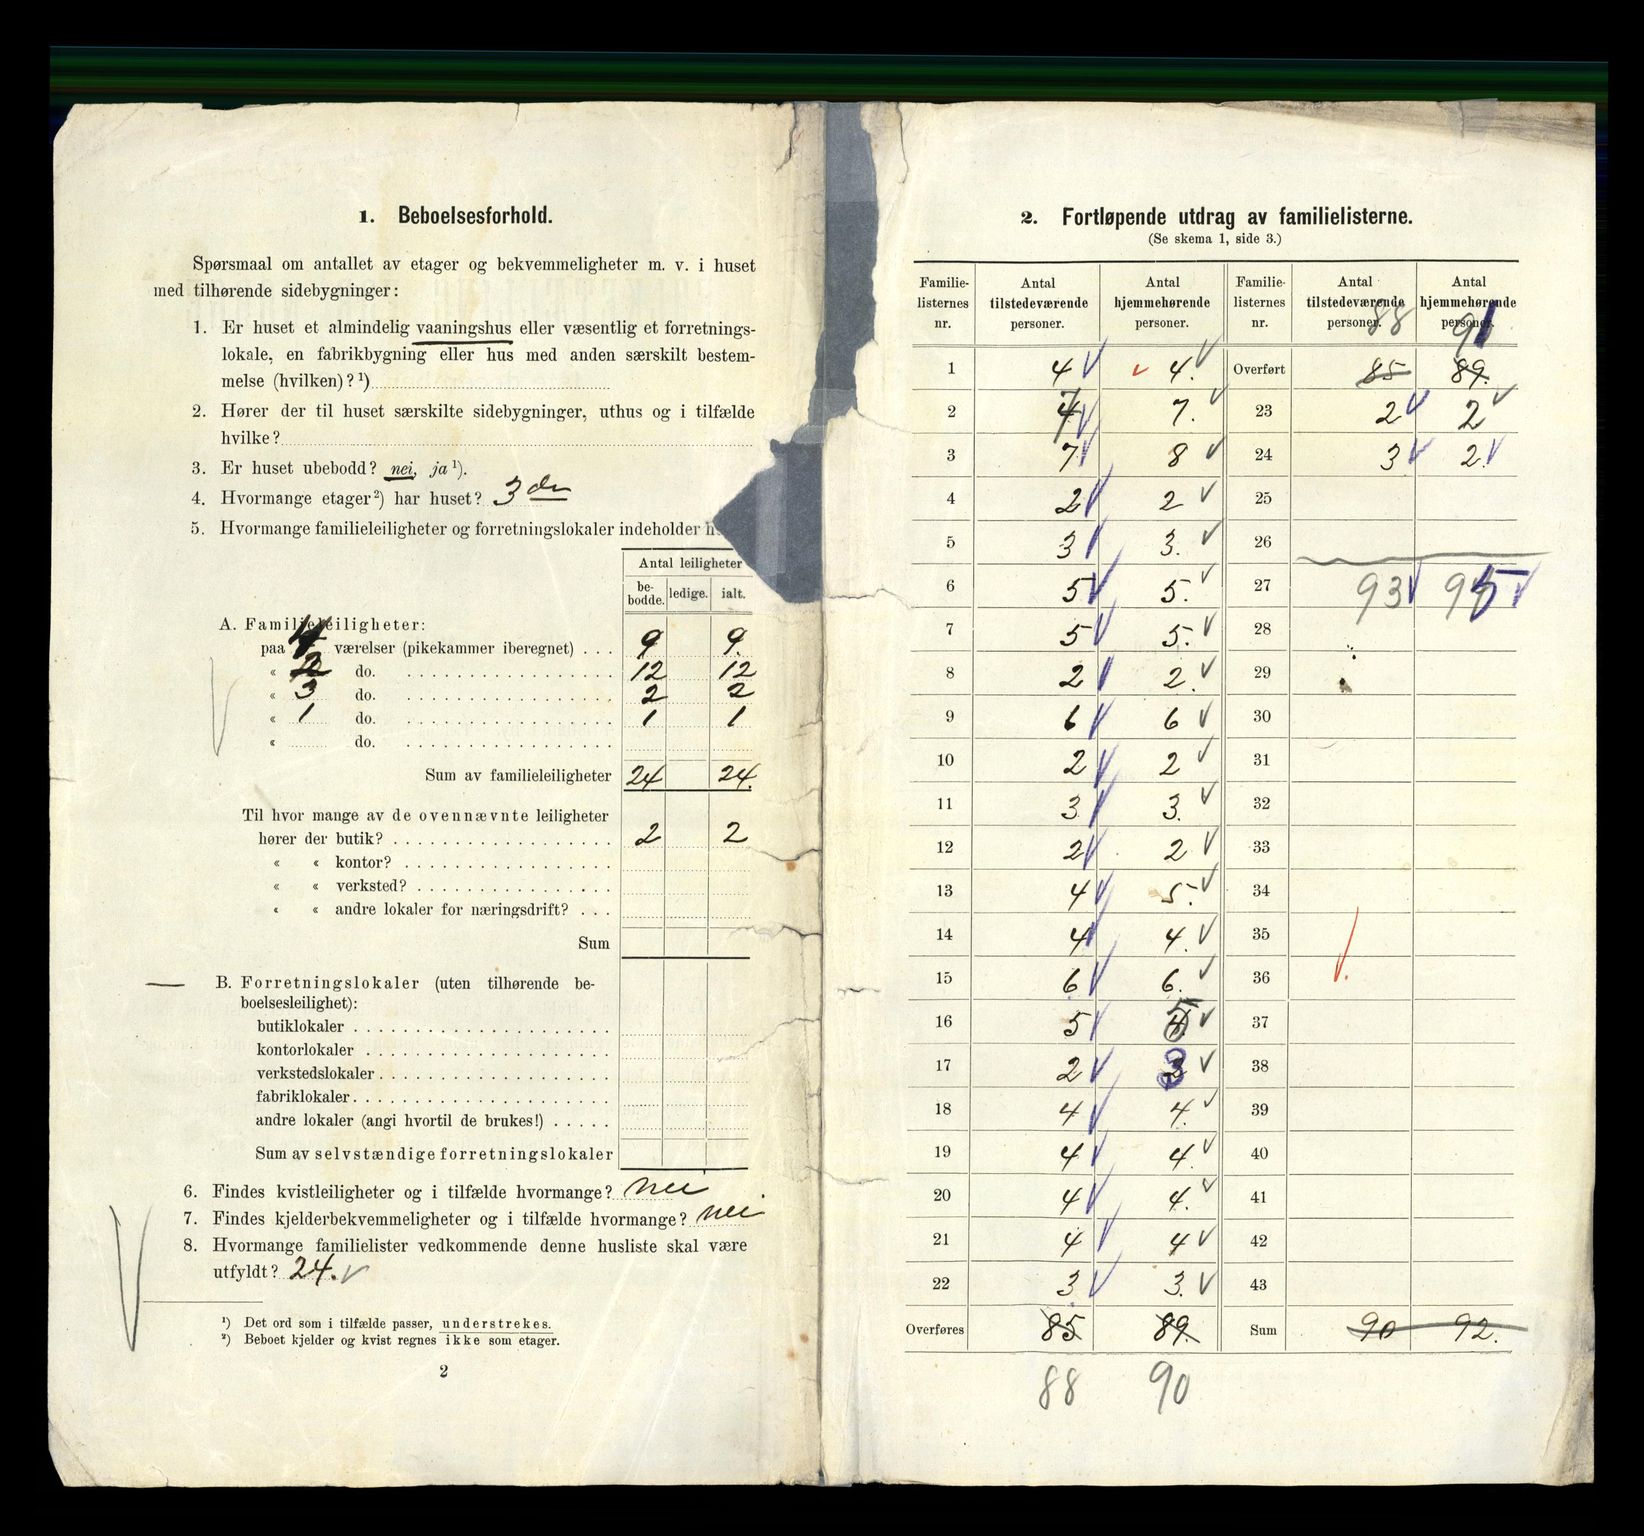 1. Beboelsesforhold.
Spørsmaal om antallet av etager og bekvemmeligheter m. v. i huset
med tilhørende sidebygninger:
1. Er huset et almindelig vaaningshus eller væsentlig et forretnings-
lokale, en fabrikbygning eller hus med anden særskilt bestem-
melse (hvilken)? ¹)
2. Hører der til huset særskilte sidebygninger, uthus og i tilfælde
hvilke?
3. Er huset ubebodd? nei, ja ¹).
4. Hvormange etager ²) har huset? 3 de
5. Hvormange familieleiligheter og forretningslokaler indeholder
Antal leiligheter
be-bodde. ledige. ialt.
A. Familieleiligheter:
paa 4 værelser (pikekammer iberegnet) . . . 9 9.
« 2 do. 12 12
« 3 do. 2 2
« 1 do. 1 1
« do.
Sum av familieleiligheter 24 24.
Til hvor mange av de ovennævnte leiligheter
hører der butik? 2 2
« « kontor?
« « verksted?
« « andre lokaler for næringsdrift? . . .
Sum
B. Forretningslokaler (uten tilhørende be-
boelsesleilighet):
butiklokaler
kontorlokaler
verkstedslokaler
fabriklokaler
andre lokaler (angi hvortil de brukes!)
Sum av selvstændige forretningslokaler
6. Findes kvistleiligheter og i tilfælde hvormange? nei
7. Findes kjelderbekvemmeligheter og i tilfælde hvormange? nei
8. Hvormange familielister vedkommende denne husliste skal være
utfyldt? 24.
¹) Det ord som i tilfælde passer, understrekes.
²) Beboet kjelder og kvist regnes ikke som etager.
2
2. Fortløpende utdrag av familielisterne.
(Se skema 1, side 3.)
Familie-listernes nr. Antal tilstedeværende personer. Antal hjemmehørende personer. Familie-listernes nr. Antal tilstedeværende personer. Antal hjemmehørende personer.
88 91
1 4 4. Overført 85 89.
2 7 7. 23 2 2
3 7 8 24 3 2.
4 2 2 25
5 3 3. 26
6 5 5. 27 93 95
7 5 5. 28
8 2 2. 29
9 6 6 30
10 2 2 31
11 3 3. 32
12 2 2 33
13 4 5. 34
14 4 4. 35
15 6 6. 36
16 5 5 37
17 2 3 38
18 4 4. 39
19 4 4. 40
20 4 4. 41
21 4 4 42
22 3 3. 43
Overføres 85 89. Sum 90 92.
88 90